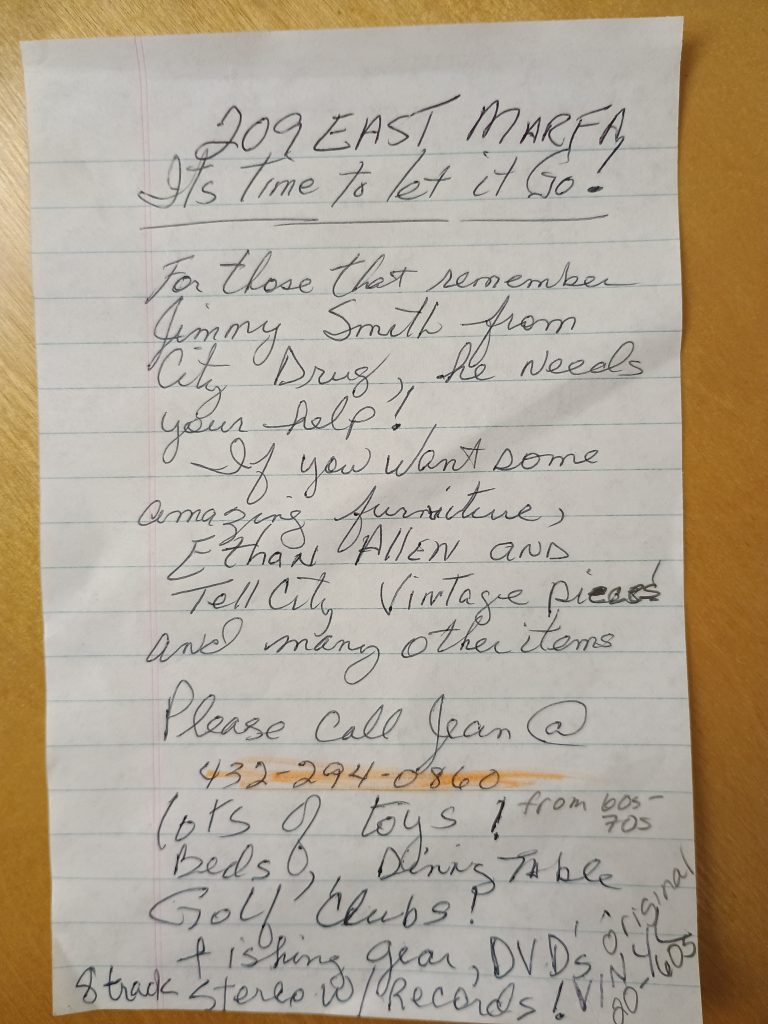 209 EAST MARFA
It's Time to let it Go!
For those that remember
Jimmy Smith from
City Drug, he needs
your help!
If you want some
amazing furniture,
Ethan Allen and
Tell City Vintage pieces
and many other items
Please Call Jean @
432-294-0860
Lots of toys! from 60s-
70s
Beds, Dining Table
Golf Clubs!
Fishing gear, DVD's,
8 track Stereo w/ Records!
original
VINYL
20-60s